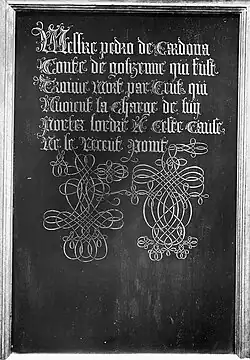 Messire pedro de Cardona
Conte de golizenne qui fust
Excuse Mort par Ceux qui
Avoient la Charge de luy
Porter lordre A Ceste Cause
Ne le Receut Point